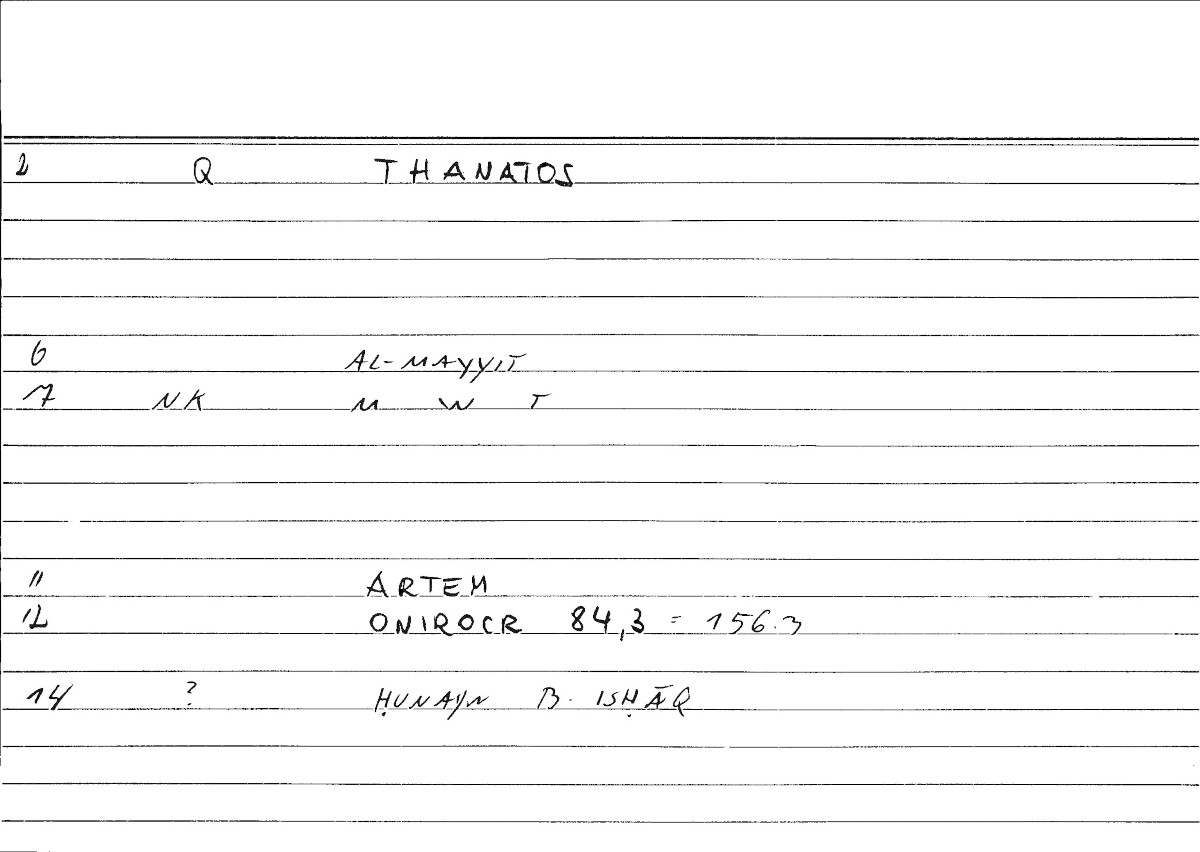 2 Q THANATOS
6 AL-MAYYIT
7 NK M W T
11 ARTEM
12 ONIROCR 84,3 = 156.3
14 ? ḤUNAYN B. ISḤĀQ